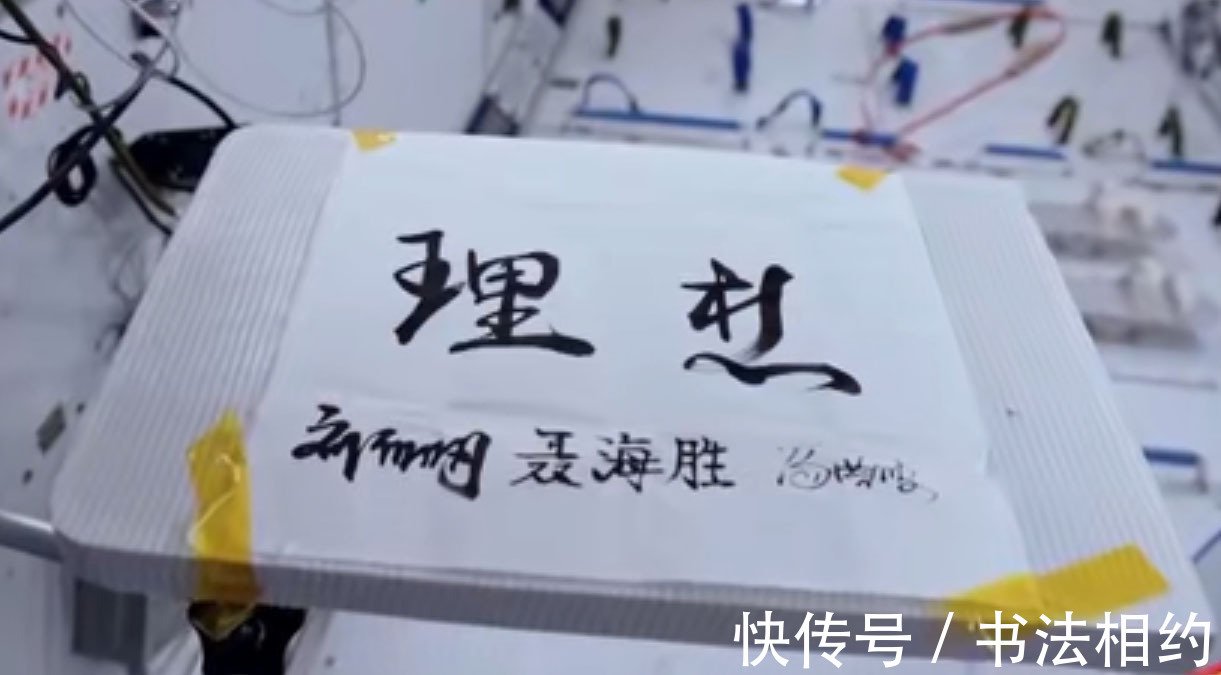 理想
刘伯明 聂海胜 汤洪波
快传号 / 书法相约